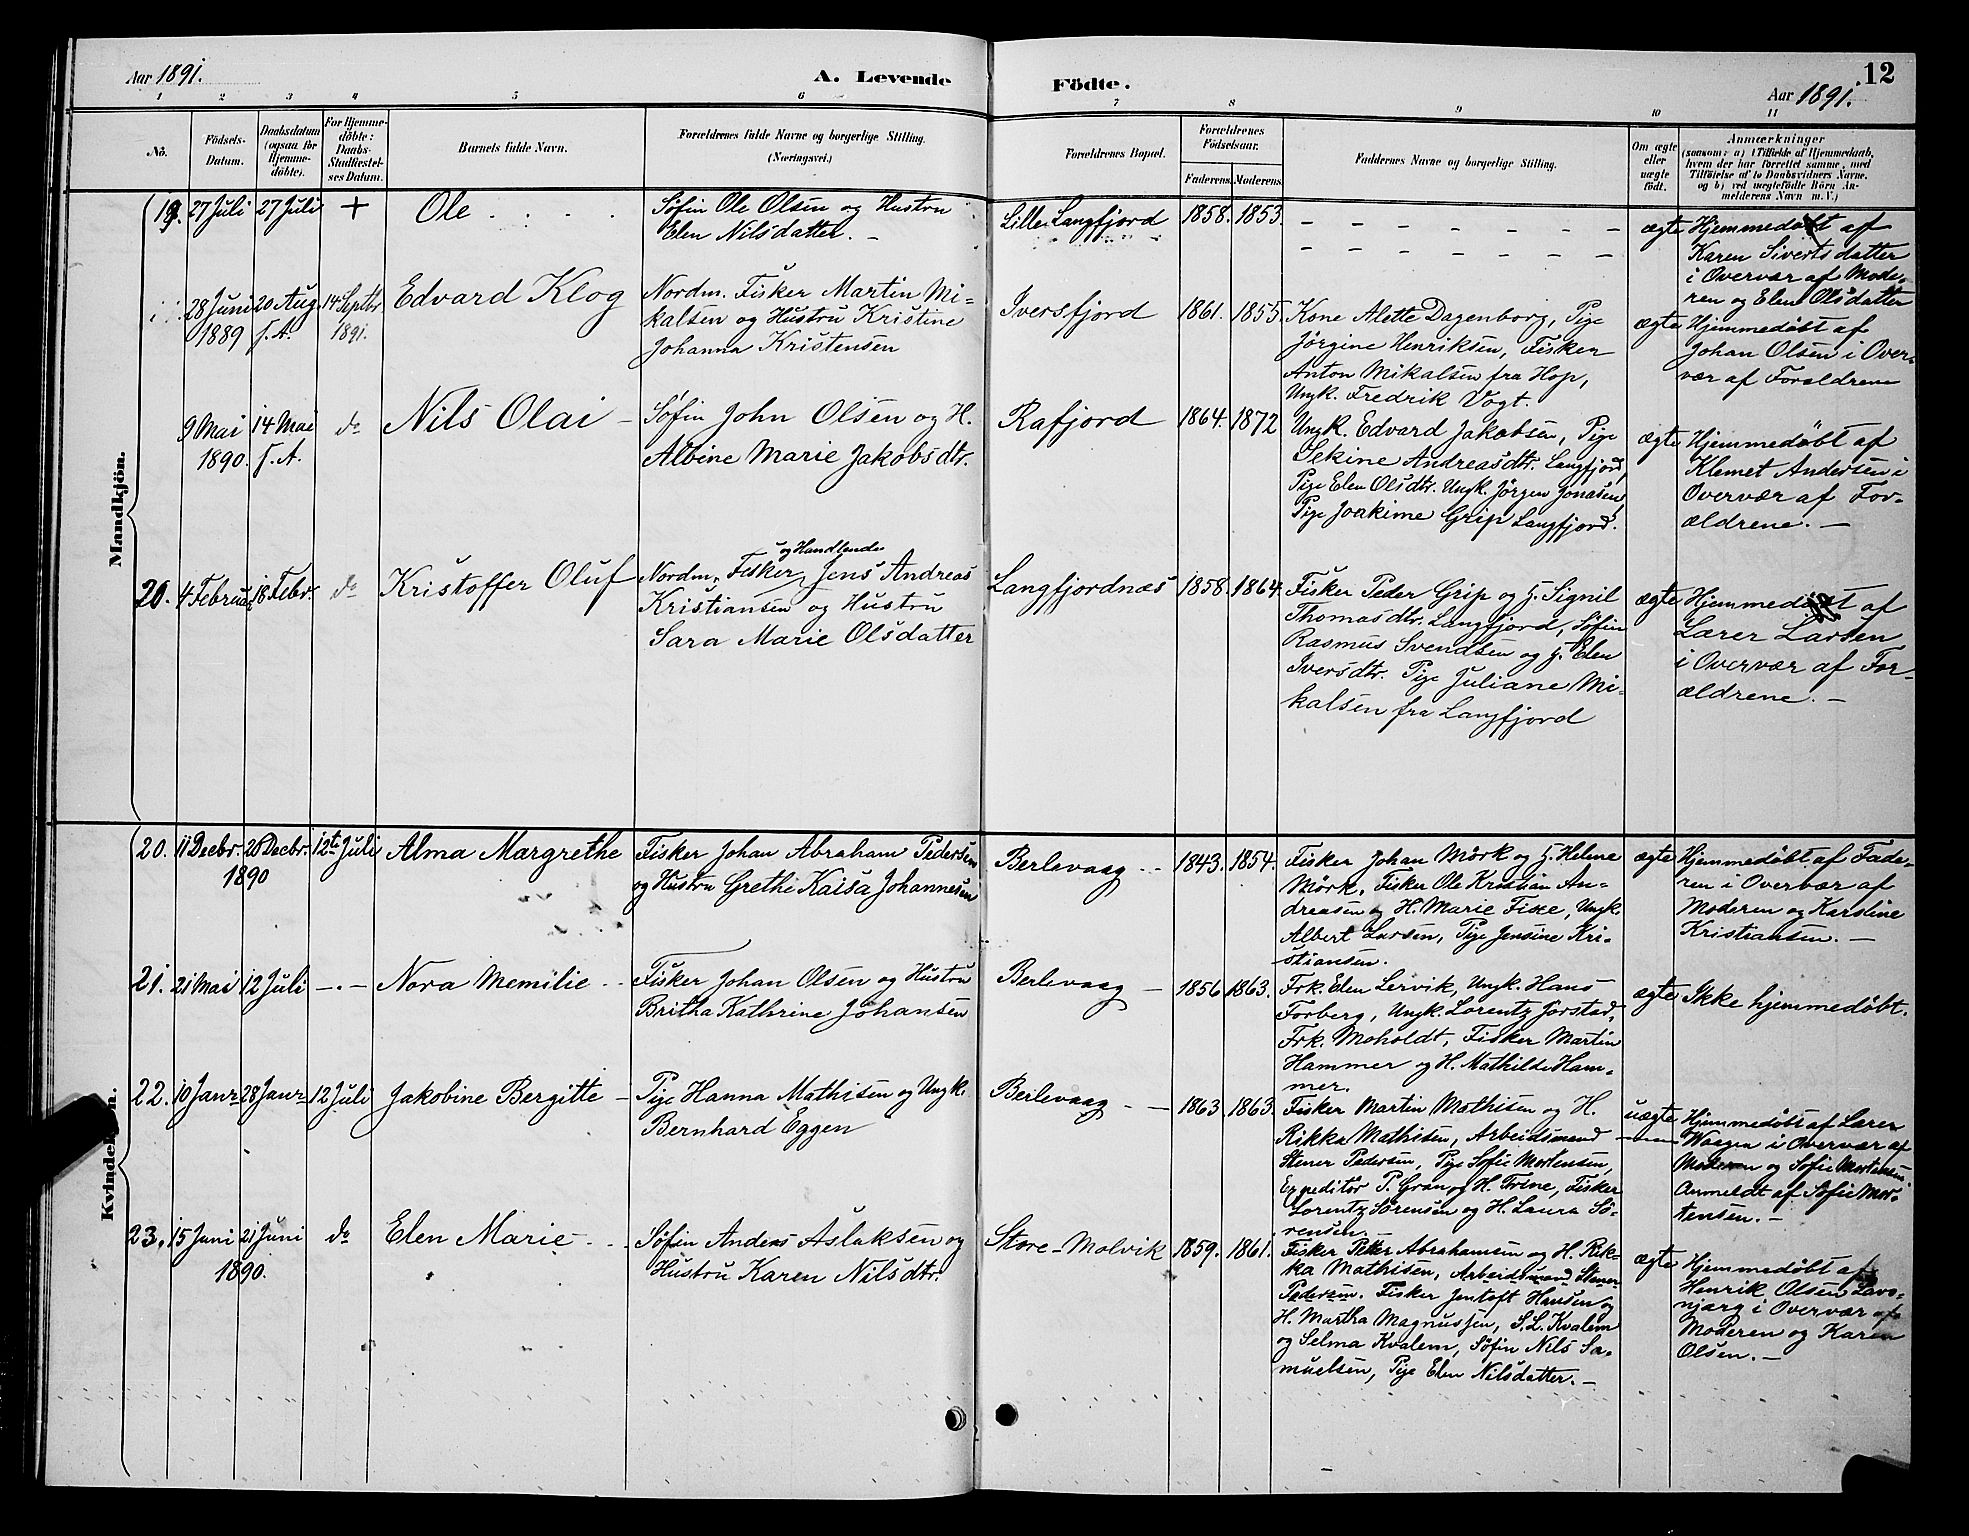 Aar 1891. A. Levende Födte. Aar 1891. 12
1 2 3 4 5 6 7 8 9 10 11
No.
Födsels-
Datum.
Daabsdatum
(ogsaa for
Hjemme-
döbte).
For Hjemme-
döbte:
Daabs-
Stadfæstel-
ses Datum.
Barnets fulde Navn.
Forældrenes fulde Navne og borgerlige Stilling.
(Næringsvei.)
Forældrenes Bopæl.
Forældrenes
Födselsaar.
Faderens. Moderens.
Faddernes Navne og borgerlige Stilling.
Om ægte
eller
uægte
födt.
Anmærkninger
(saasom: a) i Tilfælde af Hjemmedaab,
hvem der har forrettet samme, med
Tilföielse af to Daabsvidners Navne,
og b) ved uægtefödte Börn An-
melderens Navn m. V.)
Mandkjön.
19. 27 Juli 27 Juli + Ole
Søfin Ole Olsen og Hustru
Elen Nilsdatter. –
Lille Langfjord 1858. 1853.
– – – – – – –
– – – – – – –
ægte Hjemmedøbt af
Karen Siverts datter
i Overvær af Mode-
ren og Elen Olsdatter
28 Juni 20 Aug. 14 Septbr.
1889 s. A. 1891.
Edvard Klog
Nordm. Fisker Martin Mi-
kalsen og Hustru Kristine
Johanna Kristensen
Iversfjord 1861. 1855.
Kone Alette Dagenborg, Pige
Jörgine Henriksen, Fisker
Anton Mikalsen fra Hop,
Ungk. Fredrik Vogt.
ægte Hjemmedøbt af
Johan Olsen i Over-
vær af Foraldrene
9 Mai 14 Mai do
1890. s. A.
Nils Olai –
Søfin John Olsen og H.
Albine Marie Jakobsdtr.
Rafjord 1864. 1872
Ungk. Edvard Jakobsen, Pige
Sekine Andreasdtr. Langfjord,
Pige Elen Olsdtr. Ungk. Jörgen Jonasen,
Pige Joakime Grip Langfjord.
ægte Hjemmedøbt af
Klemet Andersen i
Overvær af For-
ældrene. –
20. 4 Februar 18 Febr. do Kristoffer Oluf
og Handlende
Nordm. Fisker Jens Andreas
Kristiansen og Hustru
Sara Marie Olsdatter
Langfjordnæs 1858. 1864.
Fisker Peder Grip og H. Signil
Thomasdtr. Langfjord, Søfin
Rasmus Svendsen og H. Elen
Iversdtr. Pige Juliane Mi-
kalsen fra Langfjord
ægte Hjemmedøbt af
Lærer Larsen
i Overvær af For-
ældrene. –
Kvindekjön.
20. 11 Decbr. 26 Decbr. 12te Juli
1890
Alma Margrethe
Fisker Johan Abraham Pedersen
og Hustru Grethe Kaisa Johannesen
Berlevaag – 1843. 1854.
Fisker Johan Mörk og H. Helene
Mörk, Fisker Ole Kristian An-
dreasen og H. Marie Fiske, Ungk.
Albert Larsen, Pige Jensine Kri-
stiansen.
ægte Hjemmedøbt af Fade-
ren i Overvær af
Moderen og Karstine
Kristiansen. –
21. 21 Mai 12 Juli –.– Nora Memilie
Fisker Johan Olsen og Hustru
Britha Kathrine Johansen
Berlevaag – 1856. 1863.
Frk. Elen Lervik, Ungk. Hans
Forberg, Ungk. Lorentz Jorstad,
Frk. Moholdt, Fisker Martin
Hammer og H. Mathilde Ham-
mer.
ægte Ikke hjemmedøbt.
22. 10 Janr 28 Janr 12 Juli Jakobine Bergitte –
Pige Hanna Mathisen og Ungk.
Bernhard Eggen
Berlevaag – 1863. 1863.
Fisker Martin Mathisen og H.
Rikka Mathisen, Arbeidsmand
Stener Pedersen, Pige Sofie Mortensen,
Expeditör P. Gran og H. Trine, Fisker
Lorentz Sörensen og H. Laura Sö-
rensen.
uægte Hjemmedøbt af Lærer
Waagen i Overvær af
Moderen og Sofie Mortensen
Anmeldt af Sofie Mor-
tensen. –
23. 15 Juni 21 Juni do
1890.
Elen Marie
Søfin Anders Aslaksen og
Hustru Karen Nilsdtr.
Store-Molvik 1859. 1861.
Fisker Petter Abrahamsen og H. Rik-
ka Mathisen, Arbeidsmand Stener
Pedersen. Fisker Jentoft Hansen og
H. Martha Magnussen, S. L. Kvalem
og Selma Kvalem, Søfin Nils Sa-
muelsen, Pige Elen Nilsdatter. –
ægte Hjemmedøbt af
Henrik Olsen Lavo-
njarg i Overvær af
Moderen og Karen
Olsen. –